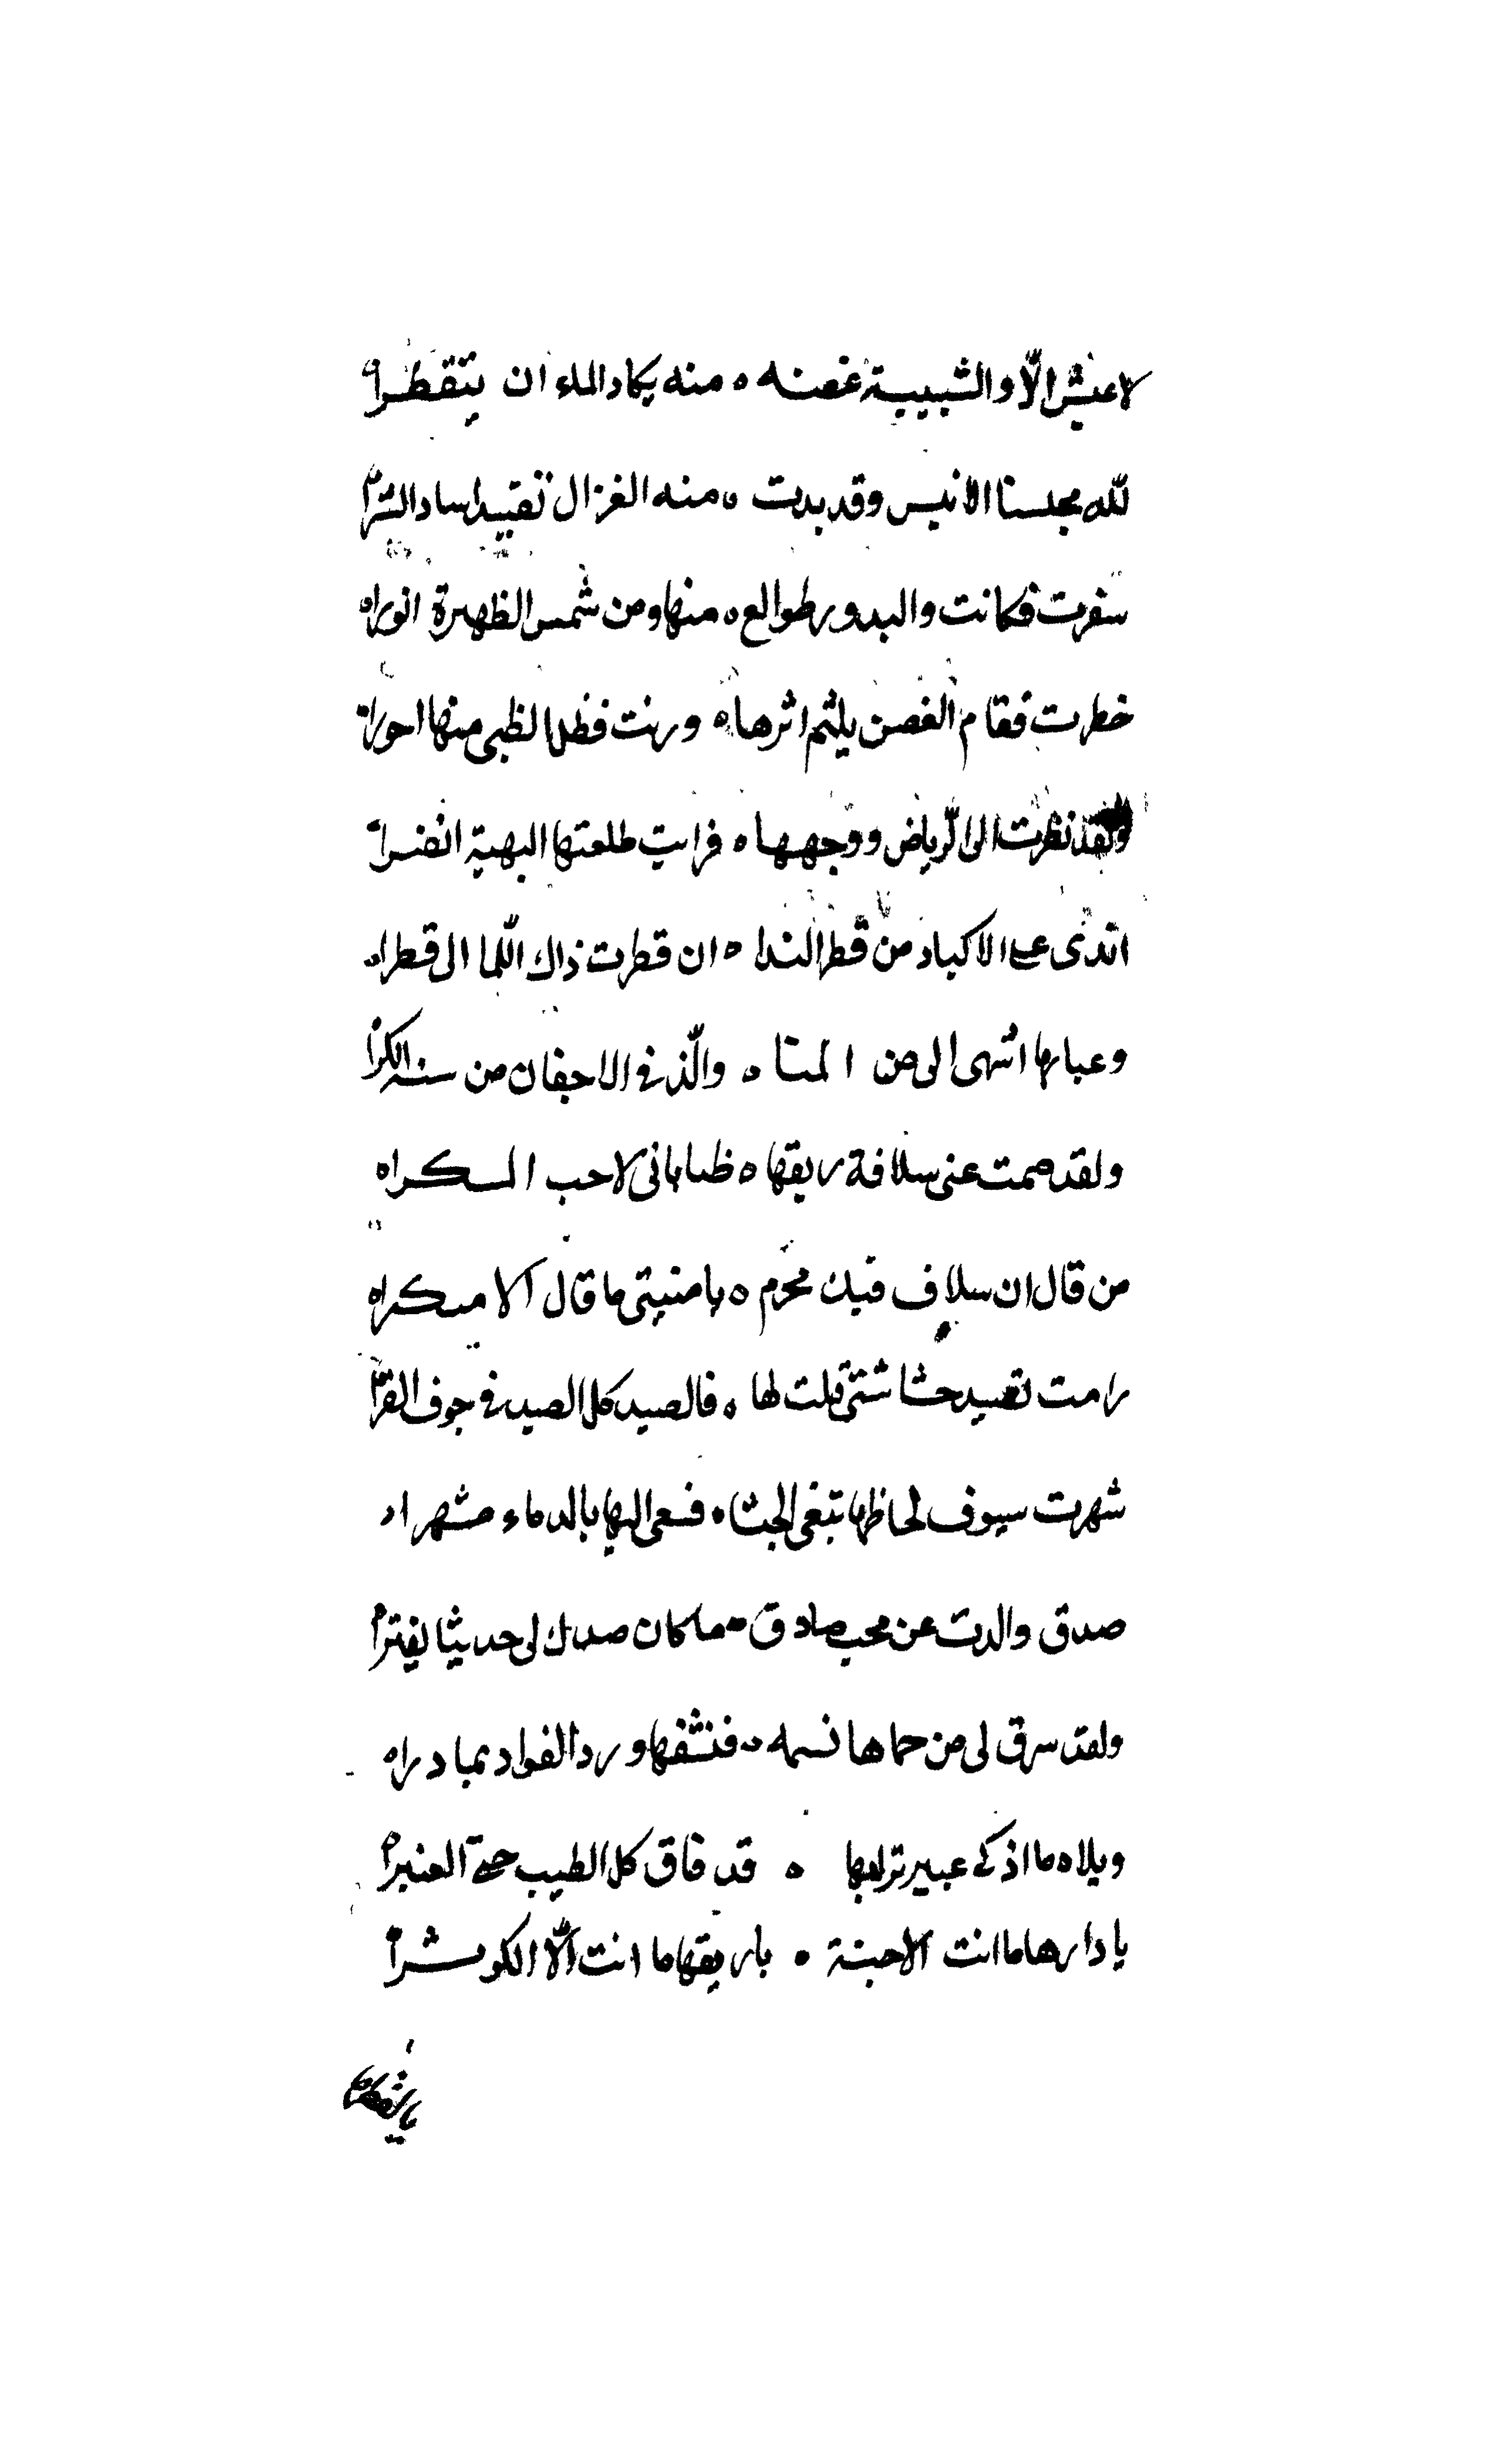 لا عيش الّا والشبيبة غصنه ه منه يكاد الماء ان يتقطرا ه
لله مجلسنا الانيس وقد بدت ه منه الغزال تقيد اساد الشرا ه
سفرت فكانت والبدور طوالع ه منها ومن شمس الظهيرة انورا ه
خطرت فقام الغصن يلثم اثرها ه ورنت فظل الظبى منها احورا ه
ولقد نظرت الى الرّياض ووجهها ه فرايت طلعتها البهية انضرا ه
اندى على الاكباد من قطر الندا ه ان قطرت ذاك اللّما الى قطرا ه
وعباراتها اشهى الى من المنا ه والّذ فى الاجفان من سنه الكرا ه
ولقد صمت عنى سلافة ريقها ه ظنا بانى لا احب المسكرا ه
من قال ان سلاف فيك محرم ه يا منيتى ما قال الا ميكرا ه
رامت تصيد حشاشتى قلت لها ه فالصيد كل الصيد فى جوف الفرا ه
شهرت سيوف لحاظها تبغى الحشا ه فسعى اليها بالدماء مشهرا ه
صدق والدت عن محب صادق ه ما كان صدك لى حديثا يفترا ه
ولقد سرق لى من حماها نسمه ه فنشقها ورد الفواد بما درا ه
ويلاه ما اذكى عبير ترابها ه قد فاق كل الطيب حتى العنبرا ه
يا دارها ما انت الا جنة ه يا ريقها ما انت الّا الكوثرا ه